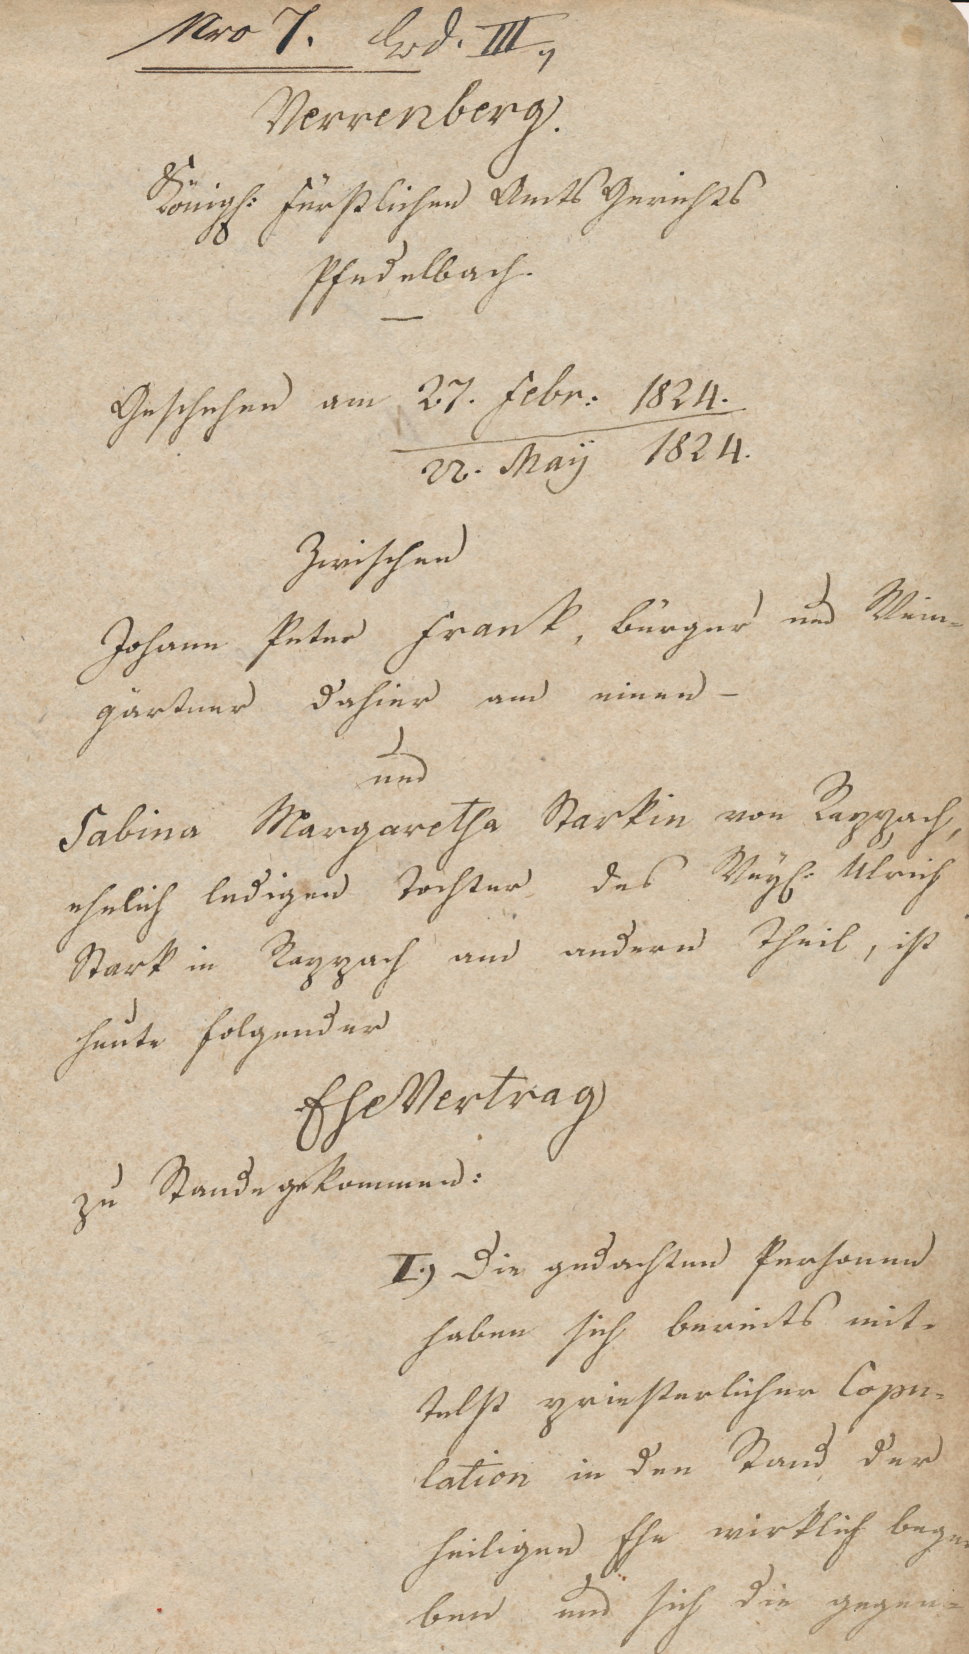 Nro 7. Lod. III.,
Verrenberg.
Königl: Fürstlichen Amts Gerichts
Pfedelbach.
Geschehen am 27. Febr: 1824.
22. Maÿ 1824.
Zwischen
Johann Peter Frank, Bürger und Wein-
gärtner dahier am einen –
und
Sabina Margaretha Starkin von Rappach,
ehelich ledigen Tochter des Weyl: Ulrich
Stark in Rappach am andern Theil, ist
heute folgender
EheVertrag
zu Stande gekommen:
I.) Die gedachten Personen
haben sich bereits mit-
telst priesterlicher Copu-
lation in den Stand der
heiligen Ehe wirklich bege-
ben und sich die gegen-